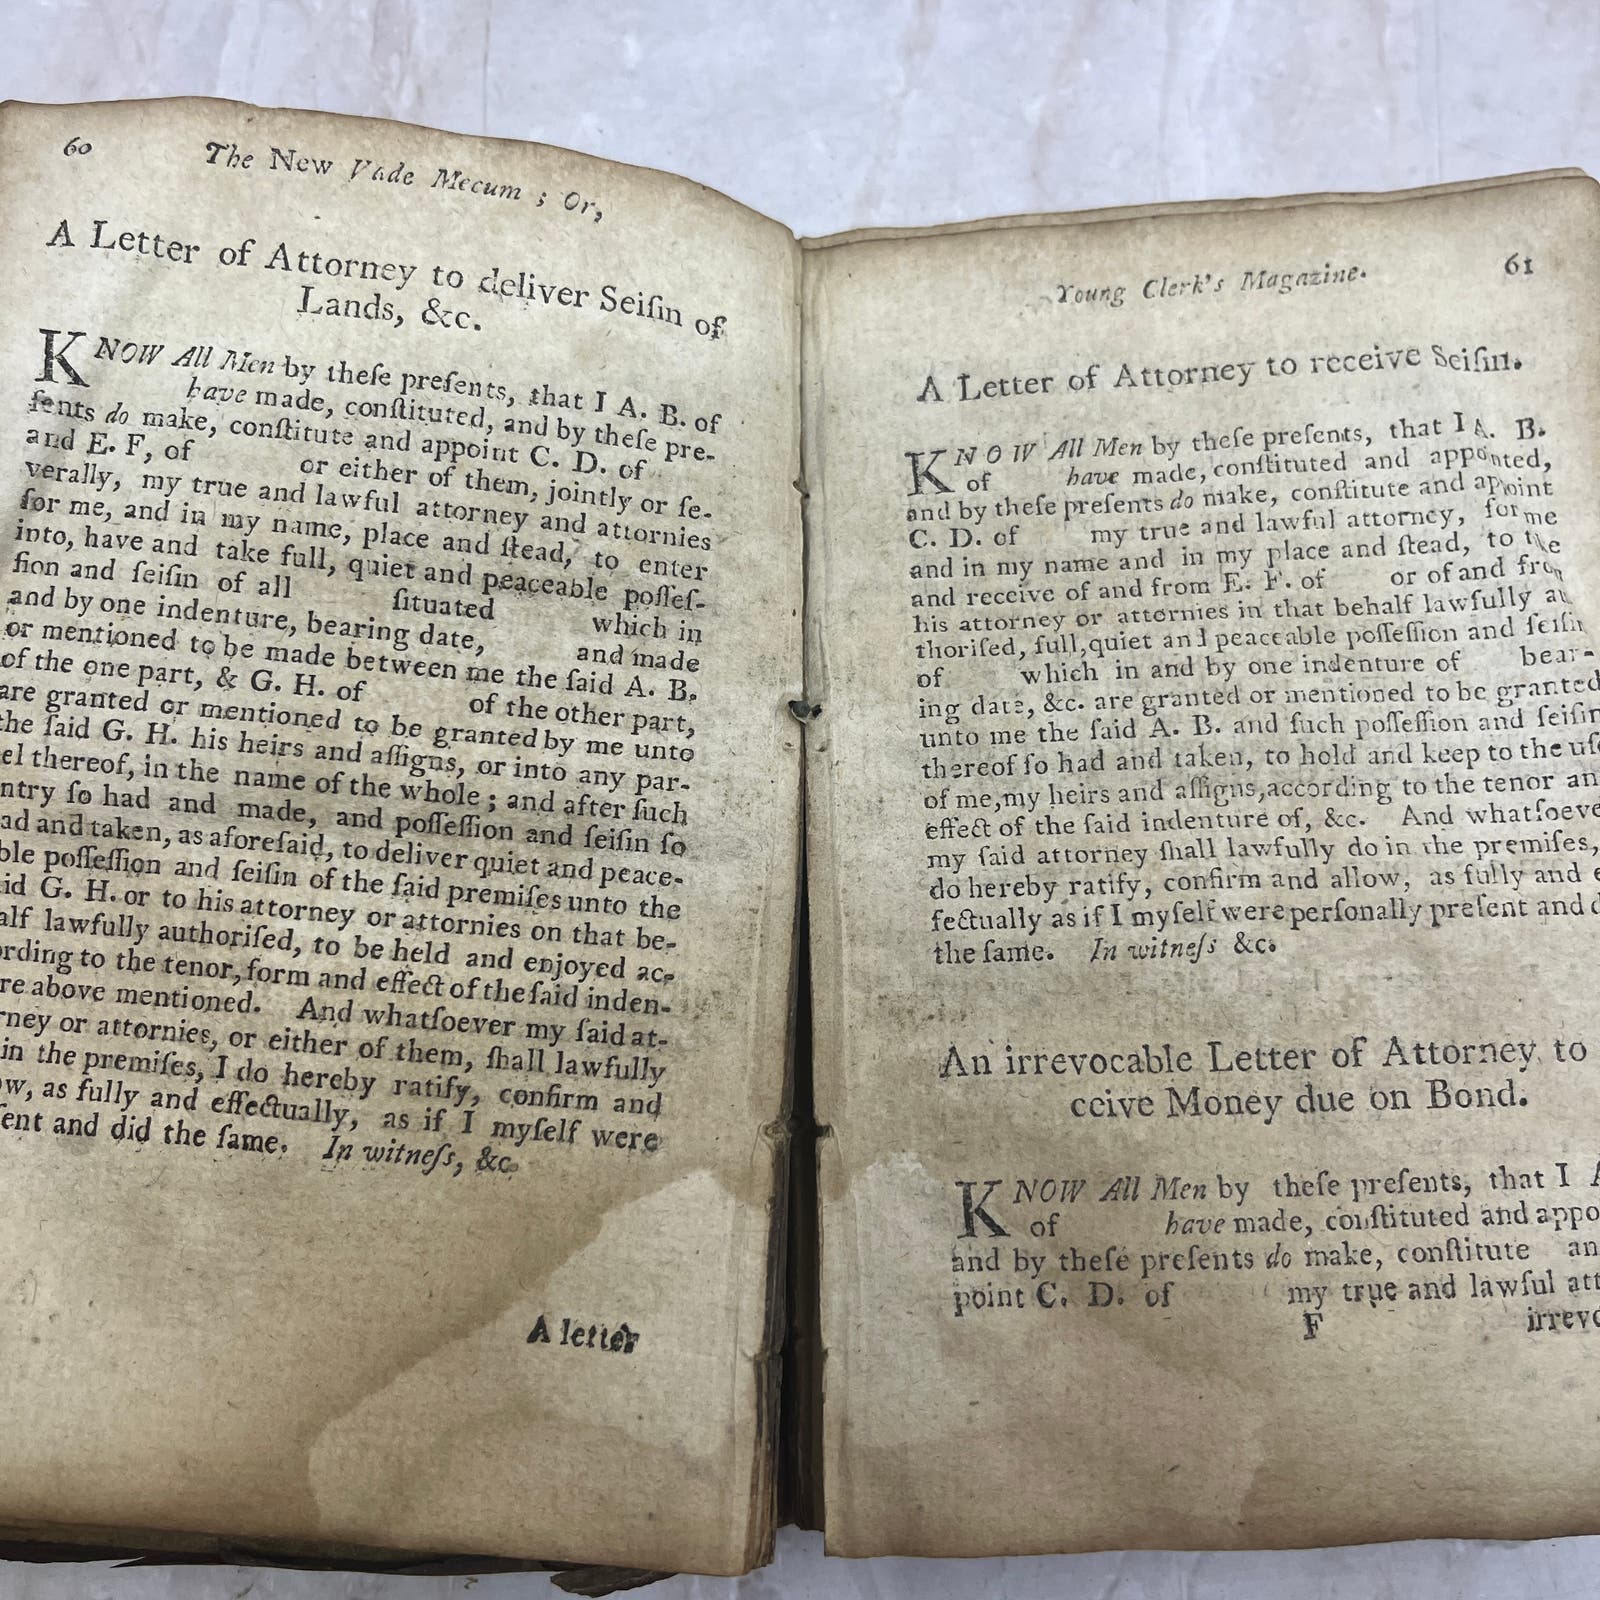 60
The New Vade Mecum ; Or,
A Letter of Attorney to deliver Seiſin of
Lands, &c.
KNOW All Men by theſe preſents, that I A. B. of
have made, conſtituted, and by theſe pre-
ſents do make, conſtitute and appoint C. D. of
and E. F, of or either of them, jointly or ſe-
verally, my true and lawful attorney and attornies
for me, and in my name, place and ſtead, to enter
into, have and take full, quiet and peaceable poſſeſ-
ſion and ſeiſin of all ſituated which in
and by one indenture, bearing date, and made
or mentioned to be made between me the ſaid A. B.
of the one part, & G. H. of of the other part,
are granted or mentioned to be granted by me unto
the ſaid G. H. his heirs and aſſigns, or into any par-
el thereof, in the name of the whole ; and after ſuch
ntry ſo had and made, and poſſeſſion and ſeiſin ſo
ad and taken, as aforeſaid, to deliver quiet and peace-
ble poſſeſſion and ſeiſin of the ſaid premiſes unto the
id G. H. or to his attorney or attornies on that be-
alf lawfully authoriſed, to be held and enjoyed ac-
ording to the tenor, form and effect of the ſaid inden-
re above mentioned. And whatſoever my ſaid at-
rney or attornies, or either of them, ſhall lawfully
in the premiſes, I do hereby ratify, confirm and
ow, as fully and effectually, as if I myſelf were
ſent and did the ſame. In witneſs, &c.
A letter
Young Clerk's Magazine.
61
A Letter of Attorney to receive Seiſin.
KNOW All Men by theſe preſents, that I A. B.
of have made, conſtituted and appointed,
and by theſe preſents do make, conſtitute and appoint
C. D. of my true and lawful attorney, for me
and in my name and in my place and ſtead, to take
and receive of and from E. F. of or of and from
his attorney or attornies in that behalf lawfully au
thoriſed, full, quiet and peaceable poſſeſſion and ſeiſin
of which in and by one indenture of bear-
ing date, &c. are granted or mentioned to be granted
unto me the ſaid A. B. and ſuch poſſeſſion and ſeiſin
thereof ſo had and taken, to hold and keep to the uſe
of me, my heirs and aſſigns, according to the tenor an
effect of the ſaid indenture of, &c. And whatſoeve
my ſaid attorney ſhall lawfully do in the premiſes,
do hereby ratify, confirm and allow, as fully and e
fectually as if I myſelf were perſonally preſent and d
the ſame. In witneſs &c.
An irrevocable Letter of Attorney to
ceive Money due on Bond.
KNOW All Men by theſe preſents, that I A
of have made, conſtituted and appo
and by theſe preſents do make, conſtitute an
point C. D. of my true and lawful att
F irrevo